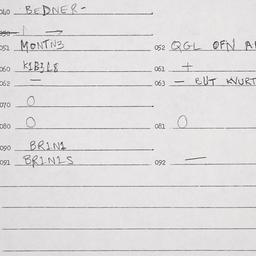 040 BEDNER-
050 1 →
051 MONTN3 052 QGL OFN A
060 K1B3L8 061 +
062 — 063 — BUT KVURT
070 O
080 O 081 O
090 BR1N1
091 BR1N1S 092 —